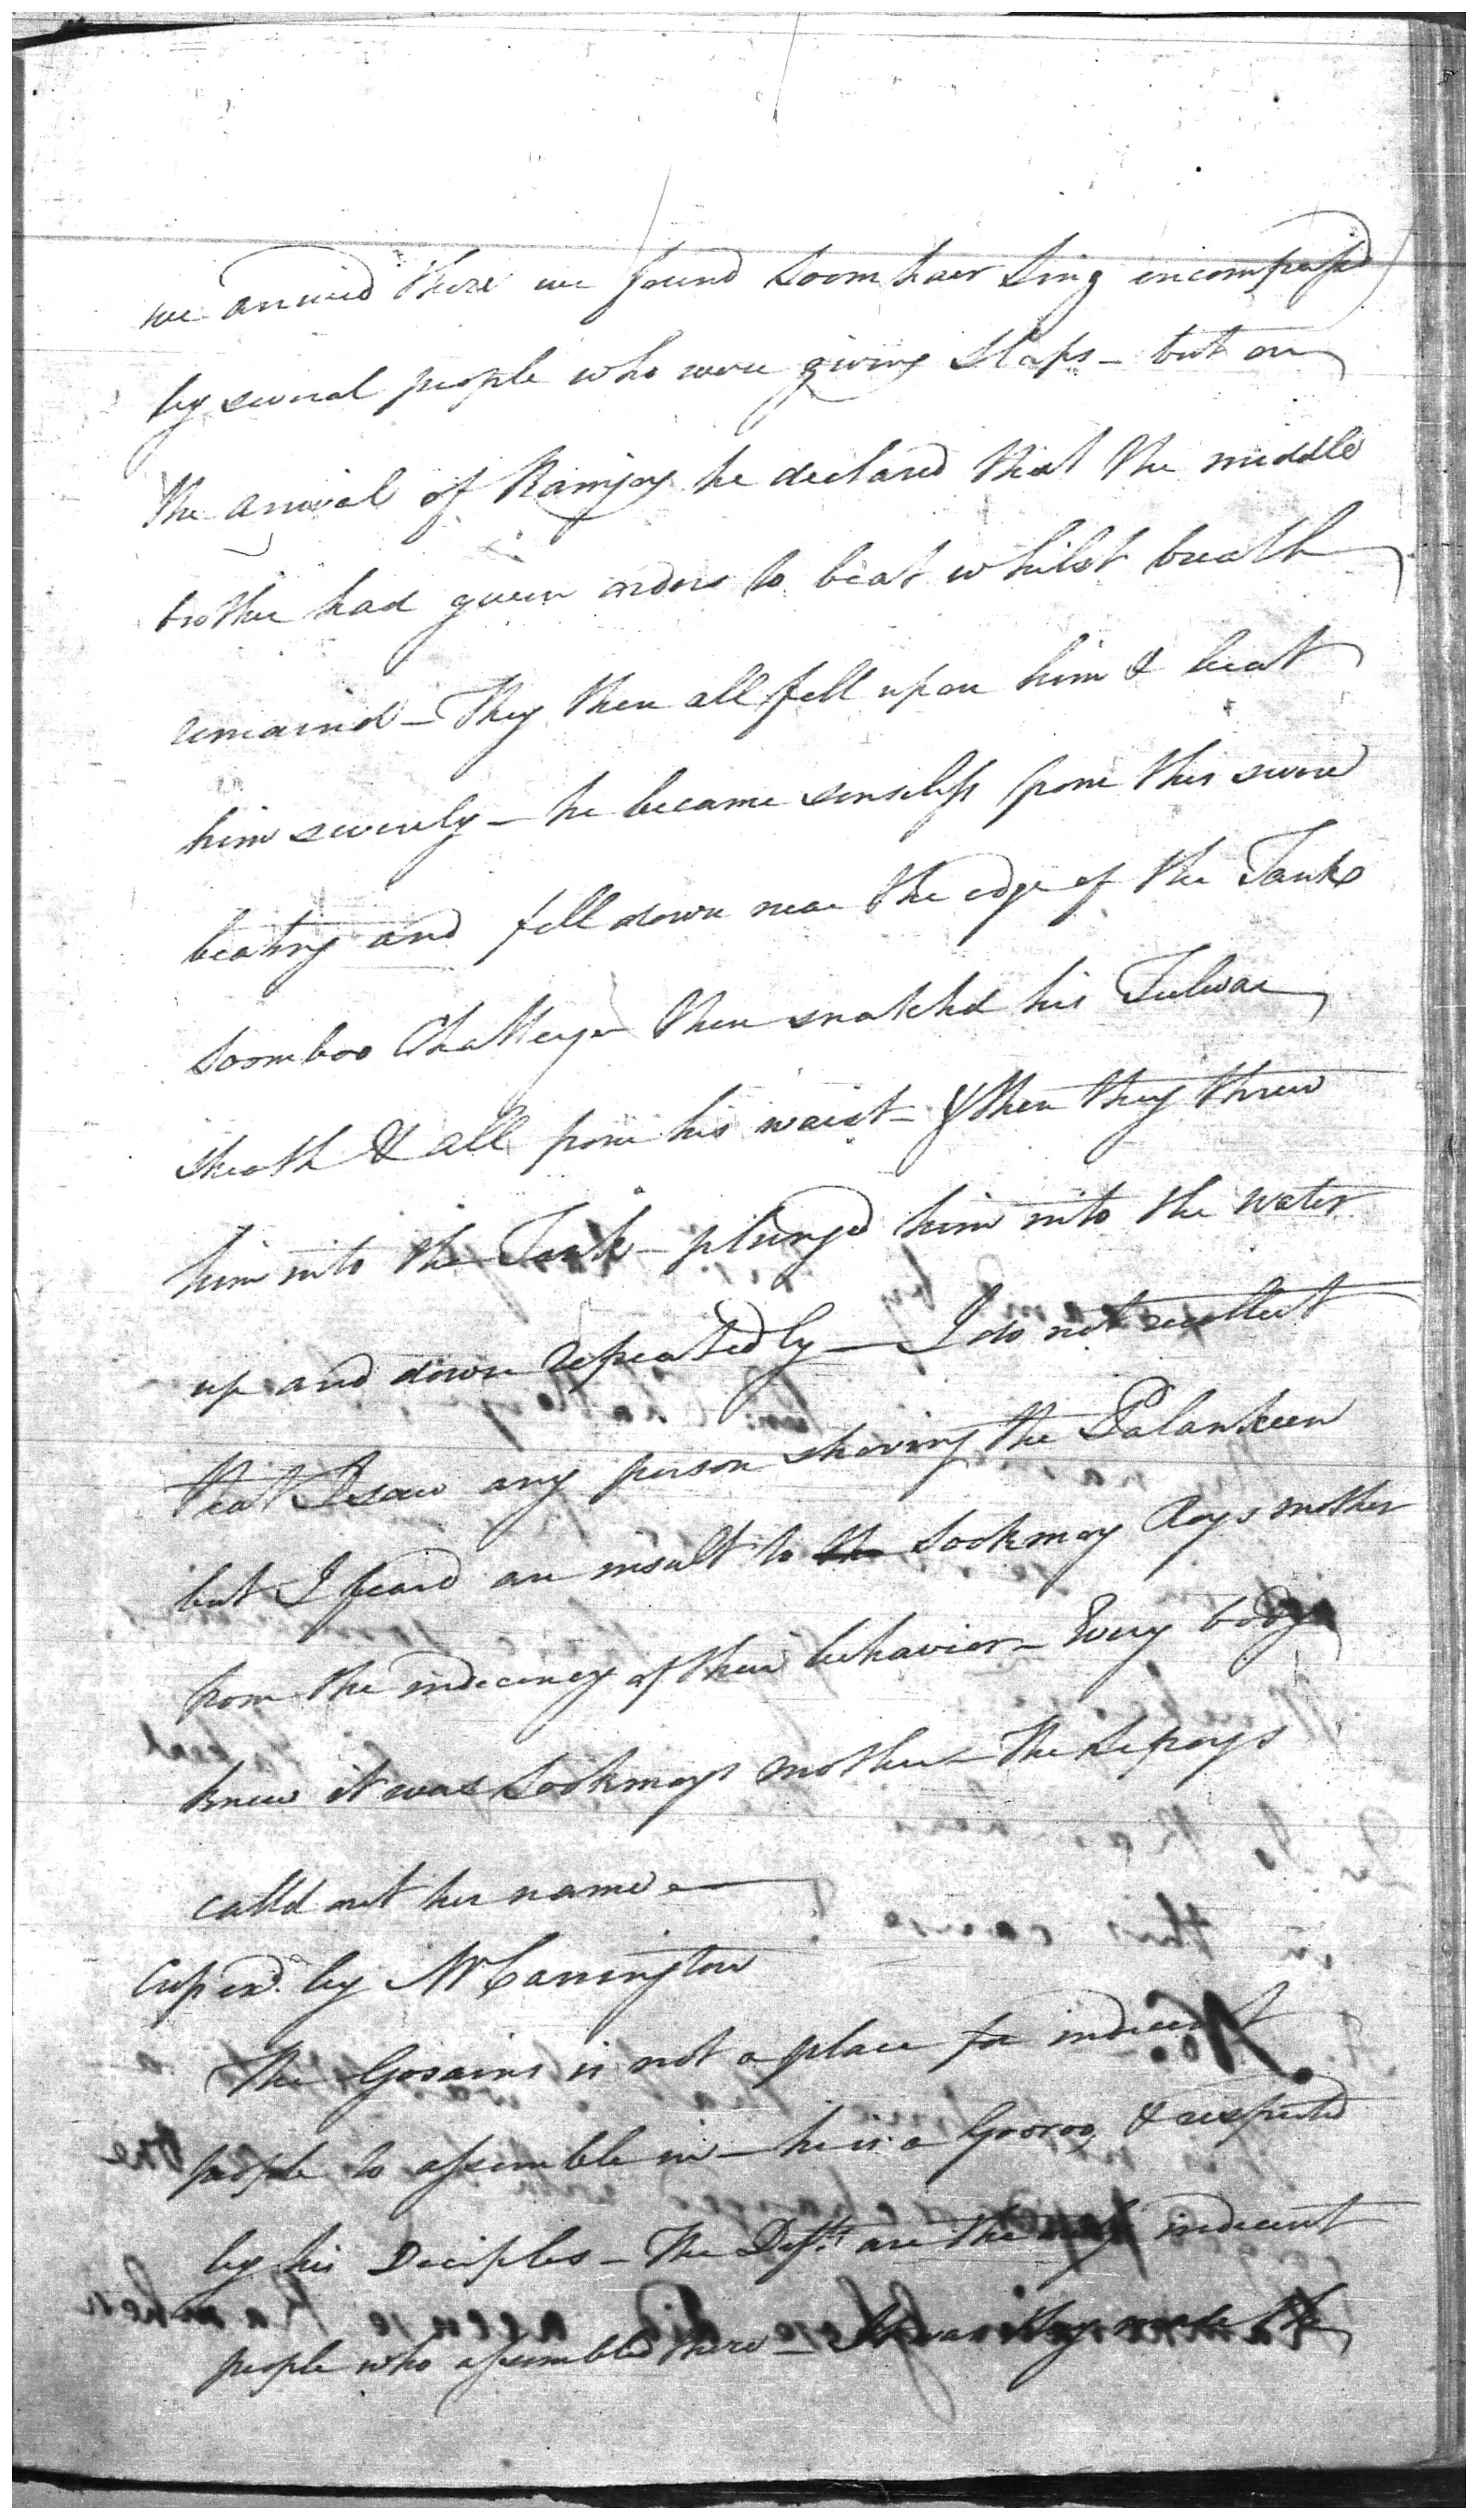 we arrived there we found Soomhaer Sing incompassed
by several people who were giving slaps – but on
the arrival of Ramjoy he declared that the middle
brother had given orders to beat whilst breath
remained – They then all fell upon him & beat
him severely – he became senseless from this severe
beating and fell down near the edge of the Tank
Soomboo Chatterjee then snatchd his Tulwar
sheath & all from his waist – & then they threw
him into the Tank – plunged him into the water
up and down repeatedly — I do not recollect
that I saw any person shoving the Palankeen
but I feard an insult to the Sookmoy Roys mother
from the indecency of their behavior – Every body
knew it was Sookmoys mother – The Sepoys
calld out her name —
Crofs exd. by Mr Carrington
The Gosains is not a place for indecent
people to assemble in – he is a Gooroo & respected
by his Deciples – The Defts. are the only indecent
people who assembled there – they made the